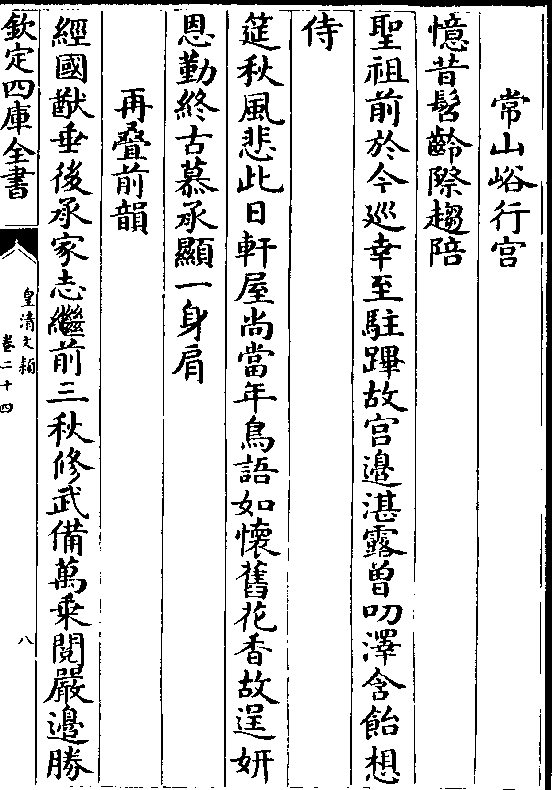 常山峪行宫
憶昔髫齡際趨陪
聖祖前於今廵幸至駐蹕故宫邉湛露曽叨澤含飴想
侍
筵秋風悲此日軒屋尚當年鳥語如懷舊花香故逞妍
恩勤終古慕承顯一身肩
再疊前韻
經國猷垂後承家志繼前三秋修武備萬乗閲嚴邉勝
欽定四庫全書
皇清文穎
卷二十四
八